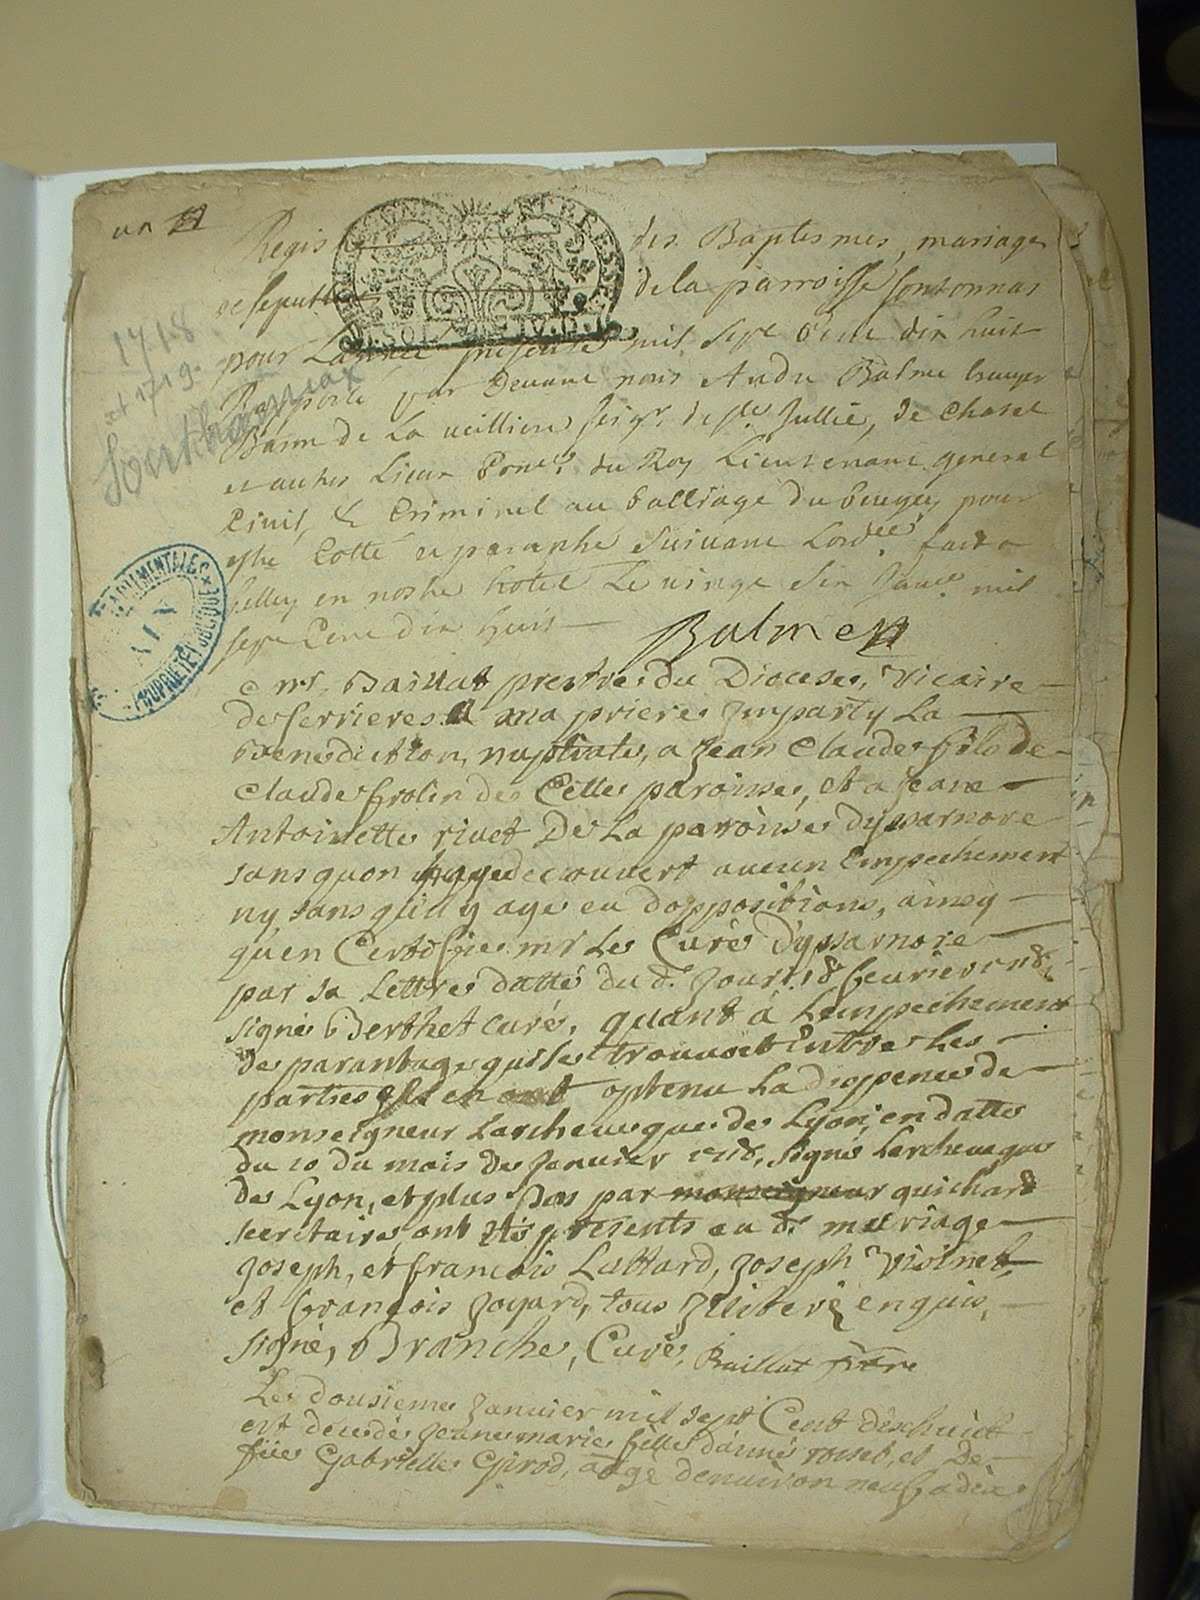 un
Regis des Baptesmes, mariages
de sepult de la parroisse Sonthonnas
pour Lannée presente mil sept cent dix huit
par Devant nous André Balme Escuyer
Baron de La veilliere seigr de ste Jullie, de Chasal
et autres Lieux Coner du Roy Lieutenant general
Civil, & Criminel au balliage du bugey pour
estre Cotté et paraphé suivant Lordce fait a
belley en nostre hotel Le vingt six Janer mil
sept Cent dix huit
Balme
1718
et 1719.
Sonthonnax
mr. Baillat prestre du Diocese, Vicaire
de serrieres a ma priere Imparty La
Benediction nuptiale, a Jean Claude fils de
Claude frolin de Cette paroisse, et a Jeane
Antoinette rivet De La parroisse dyssarnore
sans quon aye decouvert aucun Empechement
ny sans quil y aye eu doppositions, ainsy
quen Certifie mr Le Curé dyssarnore
par sa Lettre datté du d. Jour 18 fevrier 1718
signé Berthet curé, quant à Lempechement
de parantage qui se trouvoit Entre Les
parties ils en ont obtenu La dispence de
monseigneur Larcheveque de Lyon, en datte
du 10 du mois de Janvier 1718, signé Larcheveque
de Lyon, et plus bas par monseigneur guichard
secretaire, ont été présents au d. mariage
Joseph, et francois Luttard, Joseph Visinet,
et François Joyard, tous Illiteré enquis,
signé, Branche, Curé, Baillat ptre
Le dousieme Janvier mil sept Cent dixhuict
est decedé Jeane marie fille daimé rosset, et De
fue Gabrielle Girod, aagé denviron neuf a dix